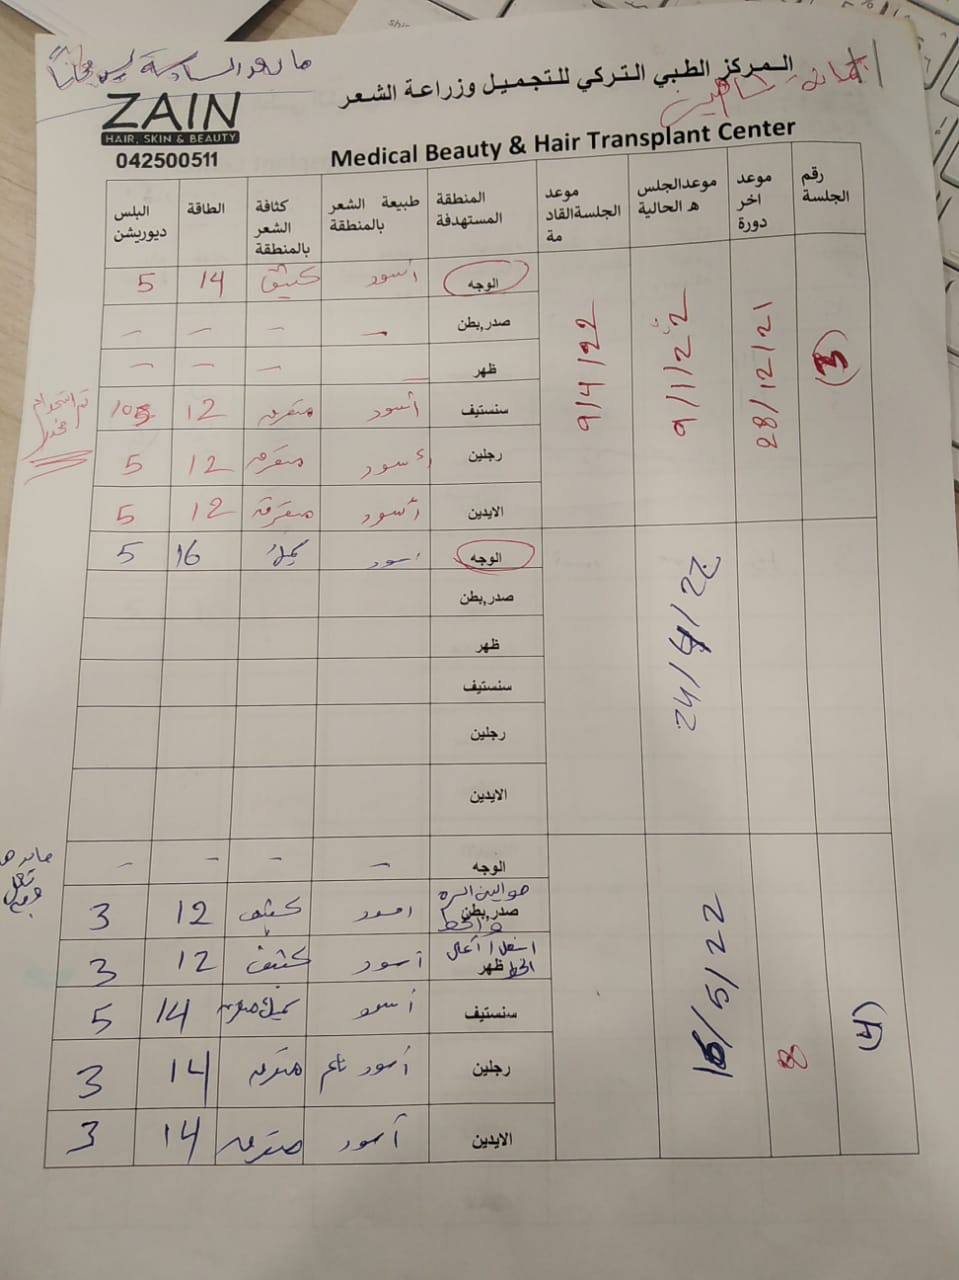 ما بعد السادسة ليزر مجاناً
المركز الطبي التركي للتجميل وزراعة الشعر
ZAIN
HAIR, SKIN & BEAUTY
042500511
Medical Beauty & Hair Transplant Center
رقم الجلسة موعد اخر دورة موعدالجلسه الحالية موعد الجلسةالقادمة المنطقة المستهدفة طبيعة الشعر بالمنطقة كثافة الشعر بالمنطقة الطاقة البلس ديوريشن
(3) 28/12/21 9/1/22 9/4/22
الوجه أسود كثيف 14 5
صدر,بطن - - - -
ظهر - - -
سنستيف أسود متفرقه 12
رجلين أسود متفرقه 12 5
الايدين أسود متفرقة 12 5
تم استخدام مخدر
24/4/22
الوجه أسود 16 5
صدر,بطن
ظهر
سنستيف
رجلين
الايدين
(4) 8 16/5/22
الوجه - - - -
حوالين السره والخط
صدر,بطن اسود كثيف 12 3
اسفل أعلى الخط
ظهر أسود كثيف 12 3
سنستيف أسود 14 5
رجلين أسود ناعم متفرقه 14 3
الايدين أسود متفرقه 14 3